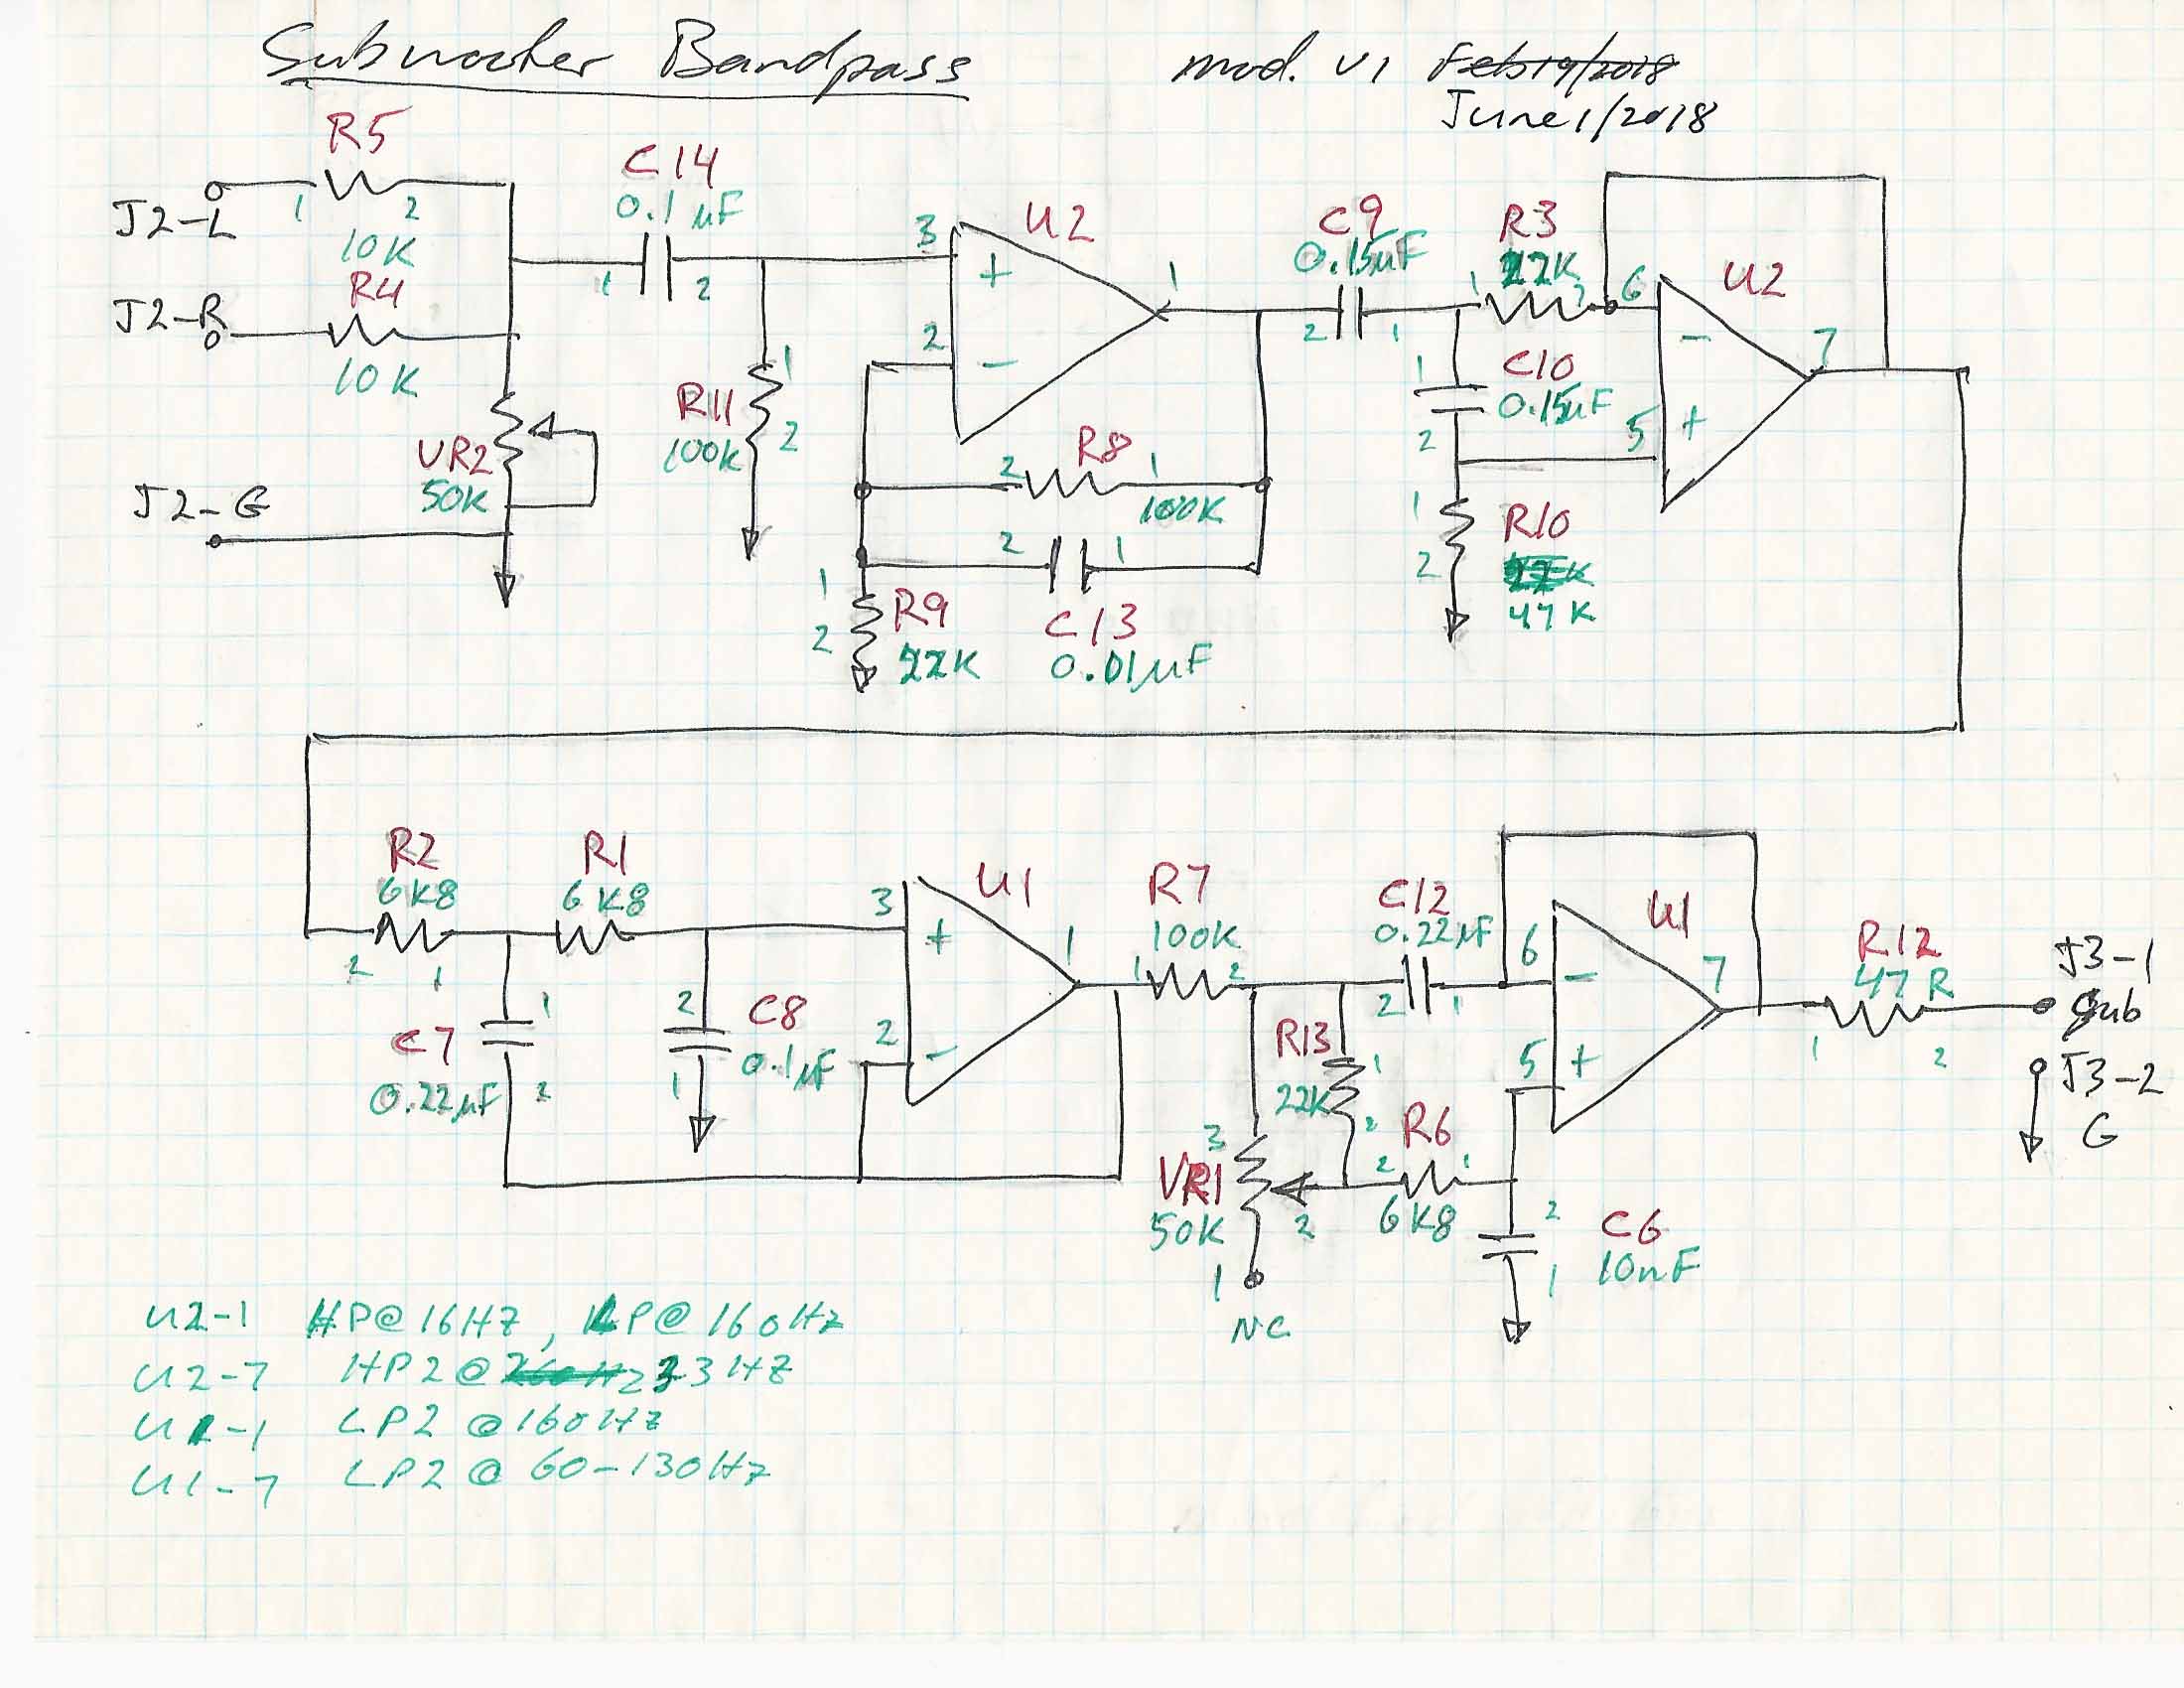 Subwoofer Bandpass
mod. V1 Feb19/2018
June 1/2018
R5
J2-L
1 2
10K
R4
J2-R
10K
VR2
50K
J2-G
C14
0.1µF
1 2
R11
100K
1
2
U2
3
+
2
-
1
R8
2 1
100K
2 1
C13
0.01µF
1
2
R9
22K
C9
0.15µF
2 1
R3
22K
1 2
C10
0.15µF
1
2
R10
47K
1
2
U2
6
-
5
+
7
R2
6K8
2 1
R1
6K8
C7
0.22µF
1
2
C8
0.1µF
2
1
U1
3
+
2
-
1
R7
100K
1 2
R13
22K
1
2
VR1
50K
3
2
1
NC
C12
0.22µF
2 1
R6
2 1
6K8
C6
10nF
2
1
U1
6
-
5
+
7
R12
47R
1 2
J3-1
Sub
J3-2
G
U2-1 HP@16HZ, LP@160Hz
U2-7 HP2@ 23HZ
U1-1 LP2@160Hz
U1-7 LP2@ 60-130Hz